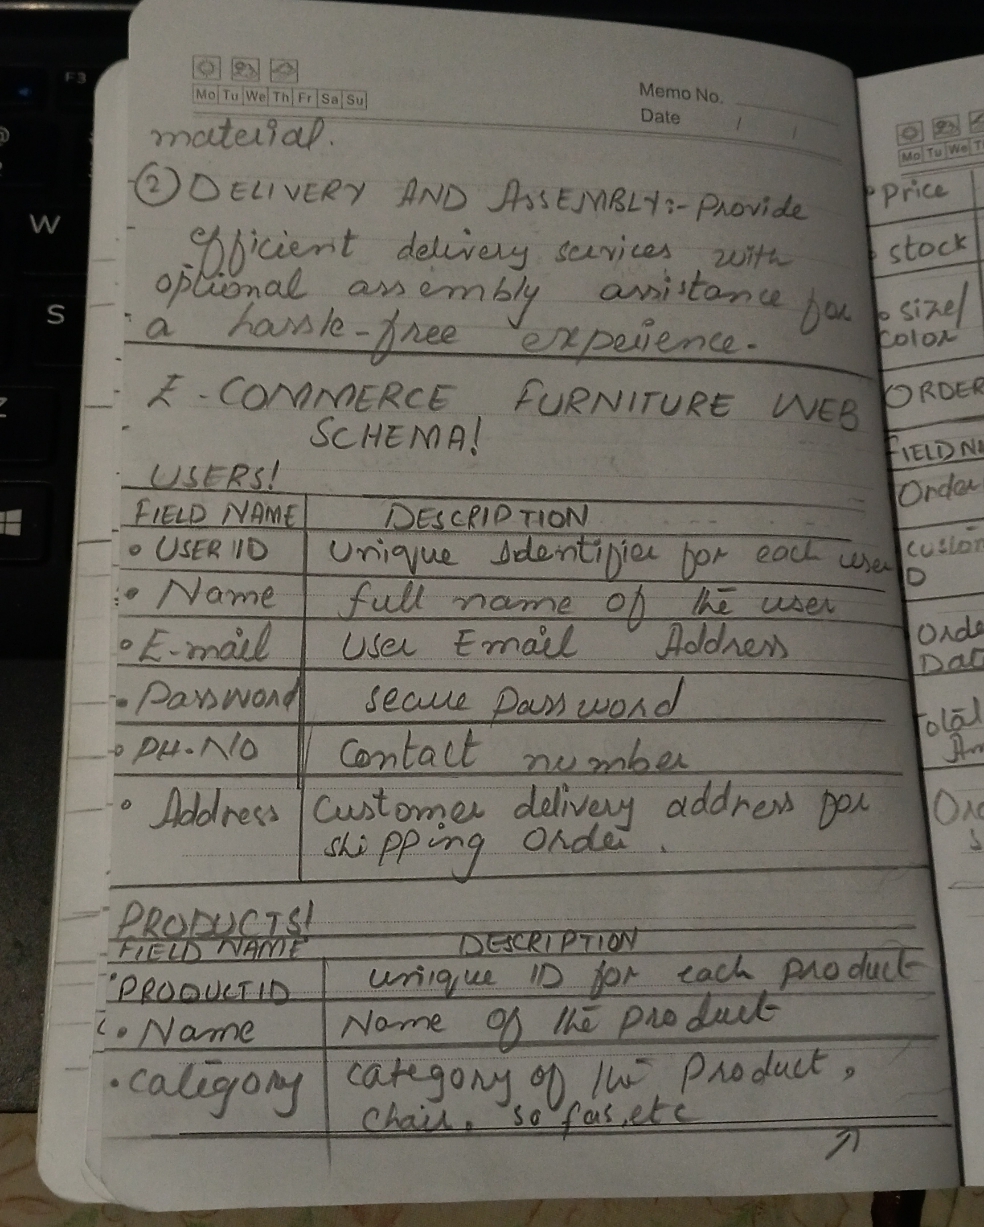 Mo Tu We Th Fr Sa Su
Memo No.
Date / /
material.
② DELIVERY AND ASSEMBLY:- Provide
efficient delivery services with
optional assembly assistance for
a hassle-free experience.
E-COMMERCE FURNITURE WEB
SCHEMA!
USERS!
FIELD NAME DESCRIPTION
• USER ID Unique Identifier for each user
• Name full name of the user
• E-mail User Email Address
• Password secure password
• PH.NO Contact number
• Address Customer delivery address for
shipping order.
PRODUCTS!
FIELD NAME DESCRIPTION
• PRODUCT ID unique ID for each product
• Name Name of the product
• Category category of the Product,
chair, sofas, etc
Mo Tu We T
• Price
• stock
• size/
color
ORDER
FIELD NA
Order
custom
D
Orde
Dat
Total
Am
F3
W
S
Z